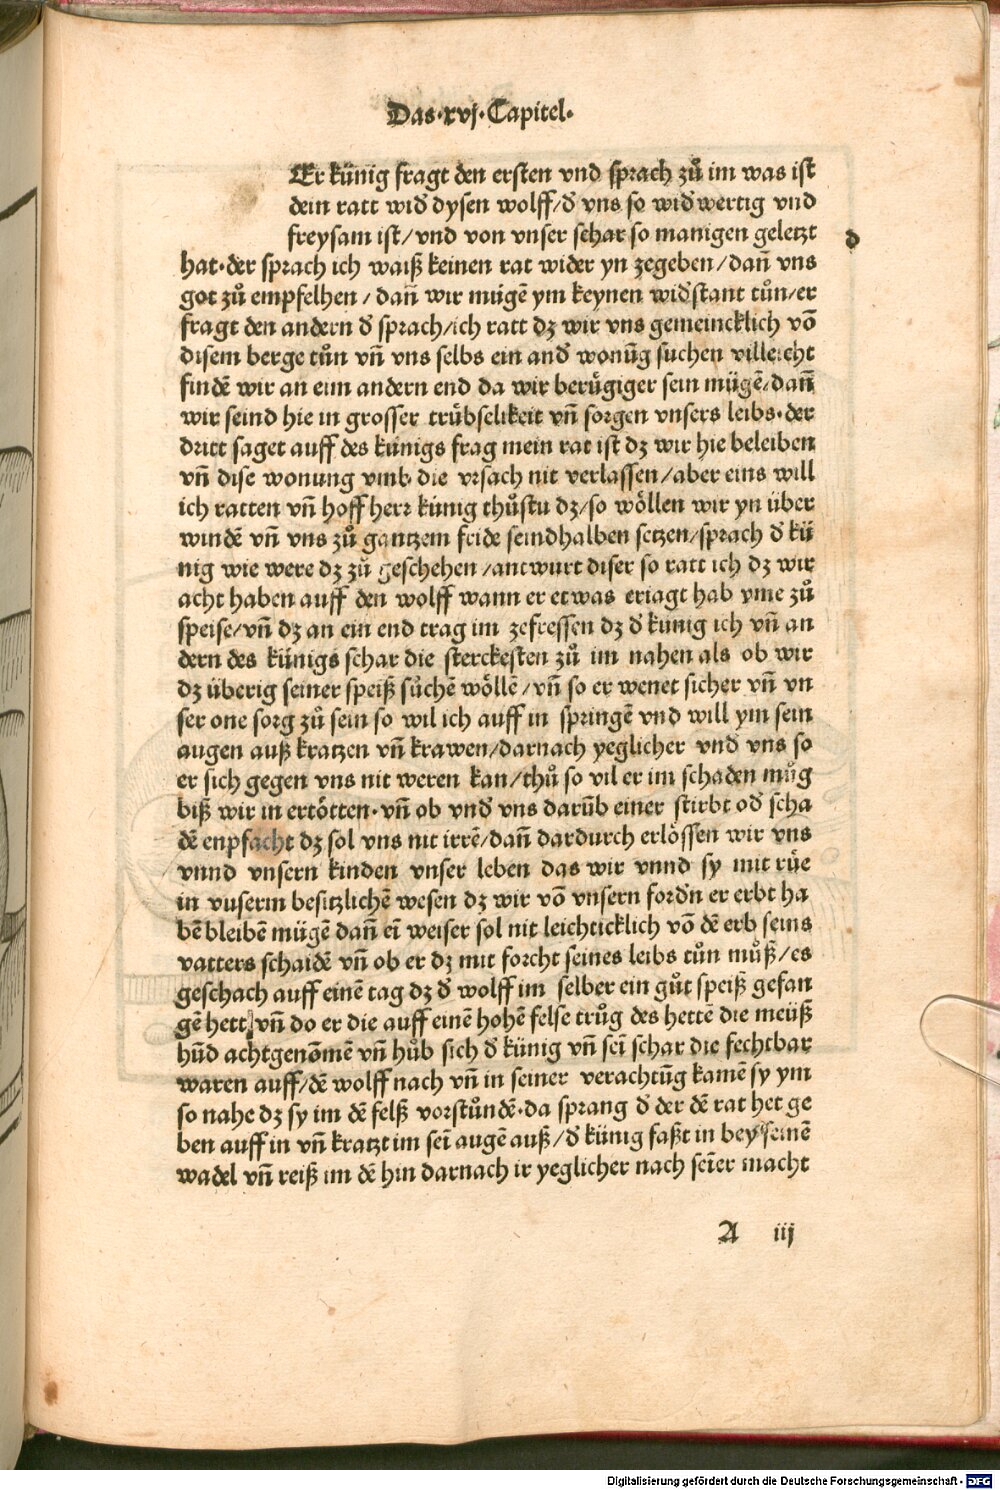 Das·xvj·Capitel·
Er künig fragt den ersten vnd sprach zů im was ist
dein ratt wid̕ dysen wolff/d̕ vns so wid̕wertig vnd
freysam ist/vnd von vnser schar so manigen geletzt
d
hat·der sprach ich waiß keinen rat wider yn zegeben/dañ vns
got zů empfelhen/dañ wir mügē ym keynen wid̕stant tůn/er
fragt den andern d̕ sprach/ich ratt dz wir vns gemeincklich vō
disem berge tůn vñ vns selbs ein and̕ wonūg suchen villeicht
findē wir an eim andern end da wir berůgiger sein mügē/dañ
wir seind hie in grosser trübselikeit vñ sorgen vnsers leibs·der
dritt saget auff des künigs frag mein rat ist dz wir hie beleiben
vñ dise wonung vmb die vrsach nit verlassen/aber eins will
ich ratten vñ hoff herr künig thůstu dz/so wöllen wir yn über
windē vñ vns zů gantzem fride seindhalben setzen/sprach d̕ kü
nig wie were dz zů geschehen/antwurt diser so ratt ich dz wir
acht haben auff den wolff wann er etwas eriagt hab yme zů
speise/vñ dz an ein end trag im zefressen dz d̕ künig ich vñ an
dern des künigs schar die sterckesten zů im nahen als ob wir
dz überig seiner speiß sůchē wöllē/vñ so er wenet sicher vñ vn
ser one sorg zů sein so wil ich auff in springē vnd will ym sein
augen auß kratzen vñ krawen/darnach yeglicher vnd̕ vns so
er sich gegen vns nit weren kan/thů so vil er im schaden můg
biß wir in ertötten·vñ ob vnd̕ vns darūb einer stirbt od̕ scha
dē enpfacht dz sol vns nit irrē/dañ dardurch erlössen wir vns
vnnd vnsern kinden vnser leben das wir vnnd sy mit růe
in vnserm besitzlichē wesen dz wir vō vnsern fordn̄ er erbt ha
bē bleibē mügē dañ eī weiser sol nit leichticklich vō dē erb seins
vatters schaidē vñ ob er dz mit forcht seines leibs tůn můß/es
geschach auff einē tag dz d̕ wolff im selber ein gůt speiß gefan
gē hett/vñ do er die auff einē hohē felse trůg des hettē die meüß
hūd achtgenōmē vñ hůb sich d̕ künig vñ seī schar die fechtbar
waren auff/dē wolff nach vñ in seiner verachtūg kamē sy ym
so nahe dz sy im dē felß vorstůndē·da sprang d̕ der dē rat het ge
ben auff in vñ kratzt im seī augē auß/d̕ künig faßt in bey seinē
wadel vñ reiß im dē hin darnach ir yeglicher nach seīer macht
A iij
Digitalisierung gefördert durch die Deutsche Forschungsgemeinschaft - DFG